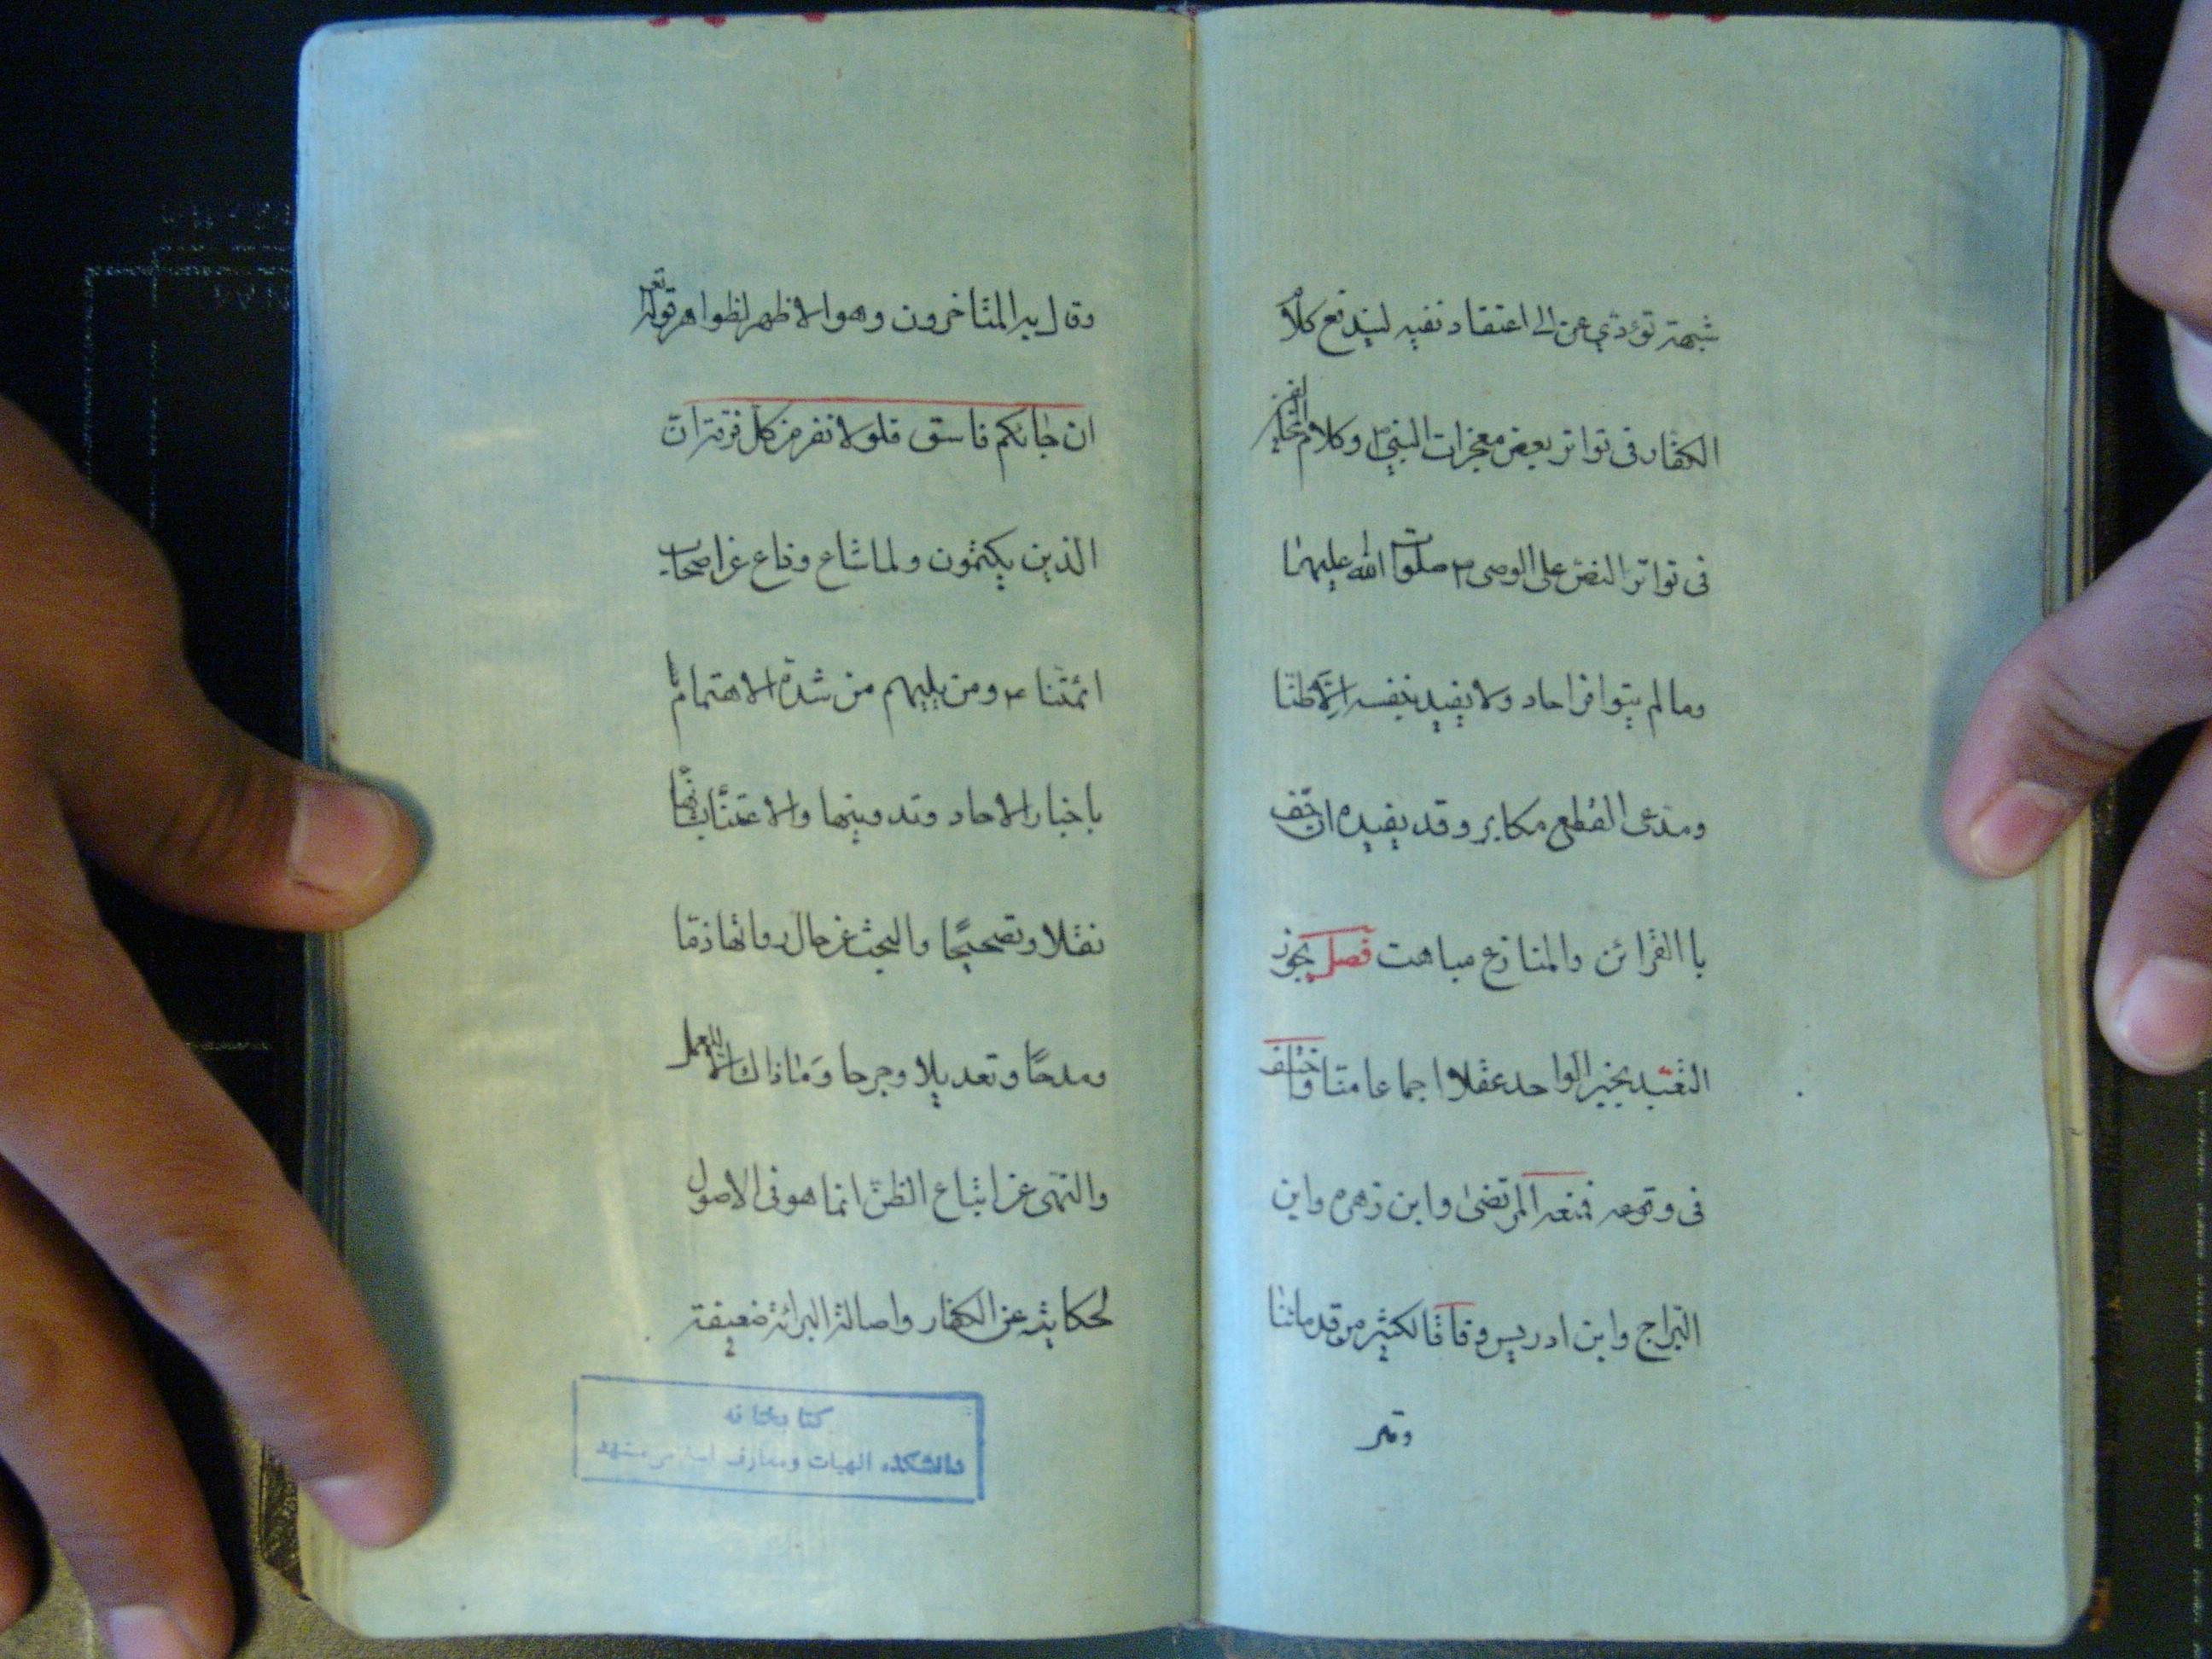 شبهة تؤدي عن الى اعتقاد نفيه ليندفع كلام
الكفار فى تواتر بعض معجزات النبي ص وكلام المخالفين
فى تواتر النص على الوصى ص صلوات الله عليهما
وما لم يتواتر احاد ولا يفيد بنفسه الا ظنا
ومدعى القطع مكابر وقد يفيده ان حف
باالقرائن والمنازع مباهت فصل يجوز
التعبد بخبر الواحد عقلا اجماعا منا واختلف
فى وقوعه فمنعه المرتضى وابن زهره وابن
البراج وابن ادريس وفاقا لكثير من قدمائنا
وقال به المتاخرون وهو الاظهر لظواهر قوله تع
ان جائكم فاسق فلولا نفر من كل فرقة ان
الذين يكتمون ولما شاع وذاع عن اصحاب
ائمتنا ع ومن يليهم من شدة الاهتمام
باخبار الاحاد وتدوينها والاعتناء بشانها
نقلا وتصحيحا والبحث عن حال رواتها ذما
ومدحا وتعديلا وجرحا وما ذاك الا للعمل
والنهى عن اتباع الظن انما هو فى الاصول
لحكايته عن الكفار واصالة البرائة ضعيفة
كتابخانه
دانشكده الهيات ومعارف اسلامى مشهد